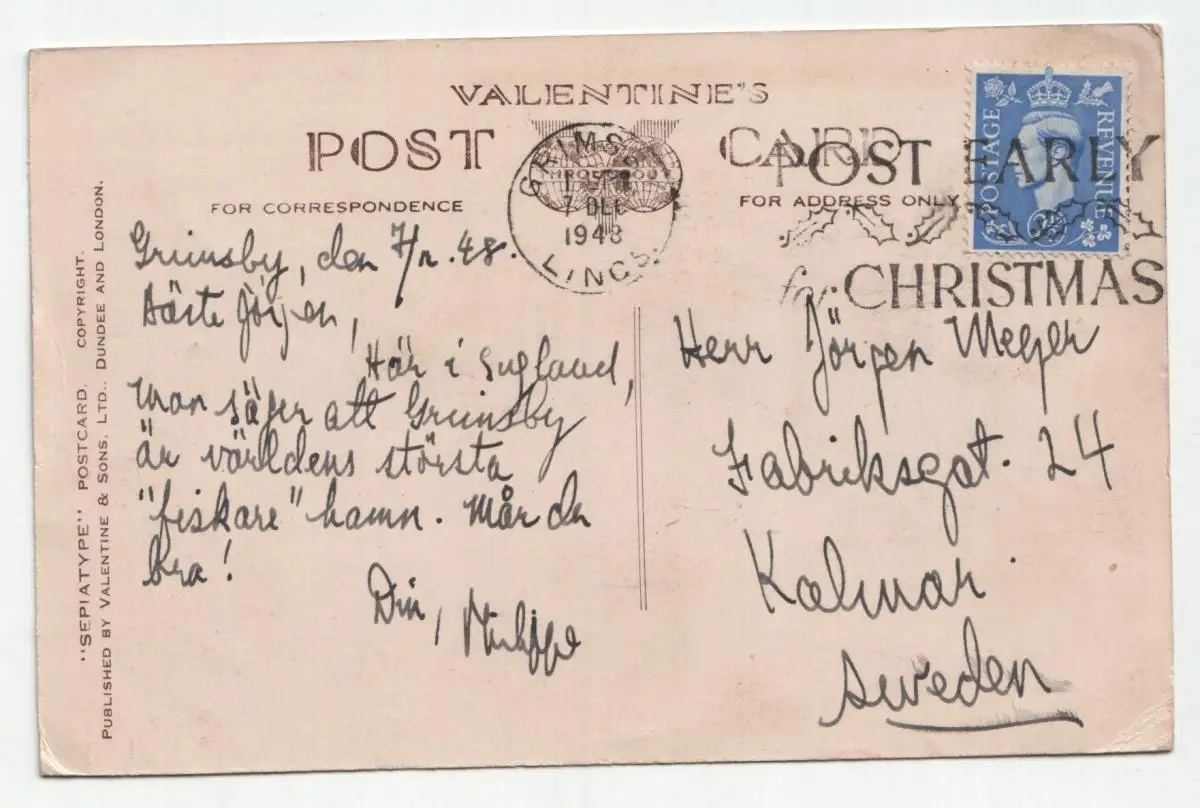 VALENTINE'S
POST CARD
FOR CORRESPONDENCE
FOR ADDRESS ONLY
GRIMSBY
7 DEC
1948
LINCS.
POST EARLY
for CHRISTMAS
POSTAGE
REVENUE
"SEPIATYPE" POSTCARD. COPYRIGHT.
PUBLISHED BY VALENTINE & SONS, LTD., DUNDEE AND LONDON.
Grimsby, den 7/12.48.
Bäste Jörgen,
Här i England,
man säger att Grimsby
är världens största
"fiskare" hamn. Mår du
bra!
Din, Philippe
Herr Jörgen Meyer
Fabriksgat. 24
Kalmar
Sweden